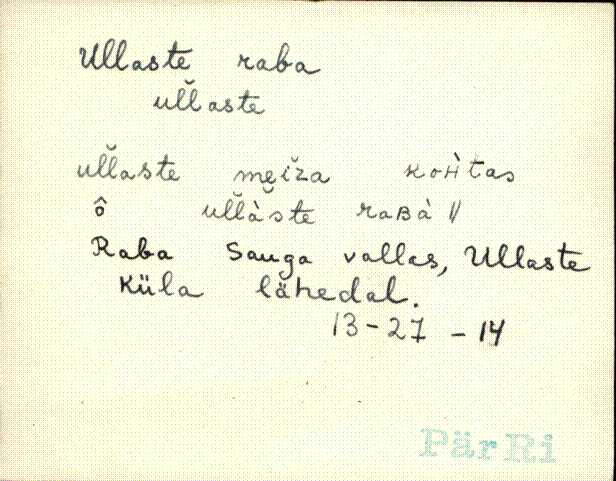 Ullaste raba
ull̆aste
ull̆aste mẹiza koʜ̀tas
ô ull̆àste raʙà ||
Raba Sauga vallas, Ullaste
Küla lähedal.
13-27-14
PärRi